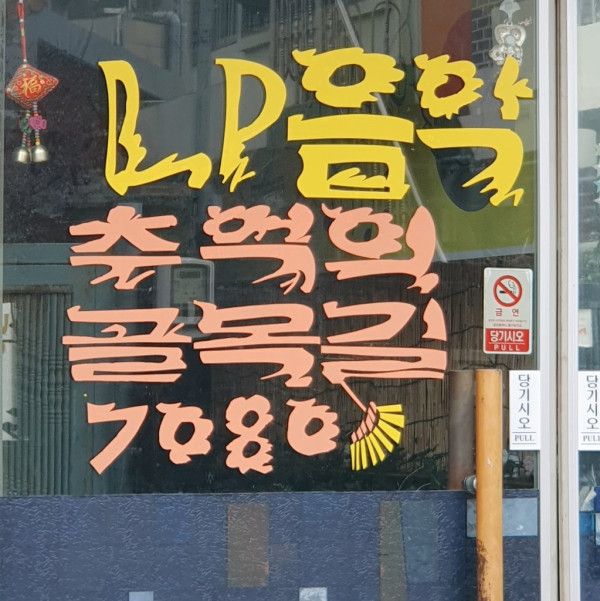 LP음악
추억의
골목길
7080
福
금연
당기시오
PULL
당기시오
PULL
당기시오
PULL